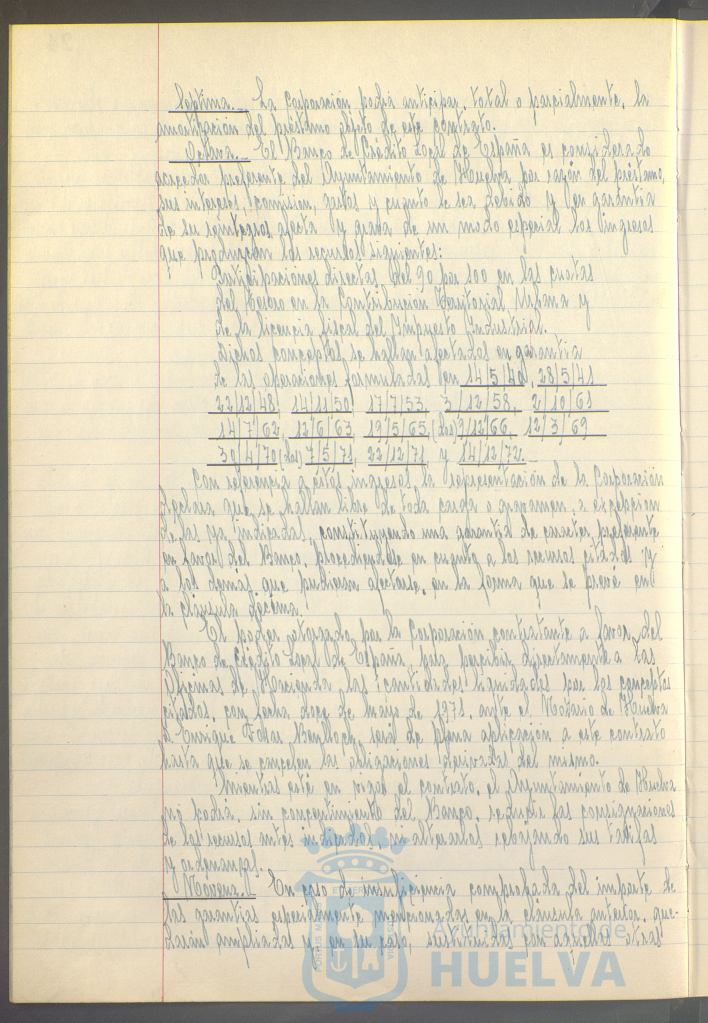 Séptima.- La Corporación podrá anticipar, total o parcialmente, la
amortización del préstamo objeto de este contrato.
Octava.- El Banco de Crédito Local de España es considerado
acreedor preferente del Ayuntamiento de Huelva por razón del préstamo,
sus intereses, comisión, gastos y cuanto le sea debido y en garantía
de su reintegro, afecta y grava de un modo especial los ingresos
que produzcan los recursos siguientes:
Participaciones directas del 90 por 100 en las cuotas
del Tesoro en la Contribución Territorial Urbana y
de la licencia fiscal del Impuesto Industrial.
Dichos conceptos se hallan afectados en garantía
de las operaciones formuladas en 14/5/40, 28/5/41
22/12/48, 14/11/50, 17/7/53, 3/12/58, 2/10/61
14/7/62, 12/6/63, 19/5/65, (dos) 9/12/66, 12/3/69
30/4/70 (dos) 7/5/71, 22/12/71 y 14/12/72.-
Con referencia a estos ingresos, la representación de la Corporación
declara que se hallan libre de toda carga o gravamen, a excepción
de las ya indicadas, constituyendo una garantía de caracter preferente
en favor del Banco, procediendose en cuanto a los recursos citados y
a los demás que pudieran afectarse, en la forma que se prevé en
la cláusula décima.
El poder otorgado por la Corporación contratante a favor del
Banco de Crédito Local de España, para percibir directamente a las
Oficinas de Hacienda las cantidades liquidadas por los conceptos
citados, con fecha doce de mayo de 1971, ante el Notario de Huelva
D. Enrique Benlloch, será de plena aplicación a este contrato
hasta que se cancelen las obligaciones derivadas del mismo.
Mientras esté en vigor el contrato, el Ayuntamiento de Huelva
no podrá, sin consentimiento del Banco, reducir las consignaciones
de los recursos antes indicados, ni alterarlos rebajando sus tarifas
y ordenanzas.
Novena.- En caso de insuficiencia comprobada del importe de
las garantías especialmente mencionadas en la cláusula anterior, que-
darán ampliadas y en su caso, sustituidas con aquellas otras
Ayuntamiento de
HUELVA